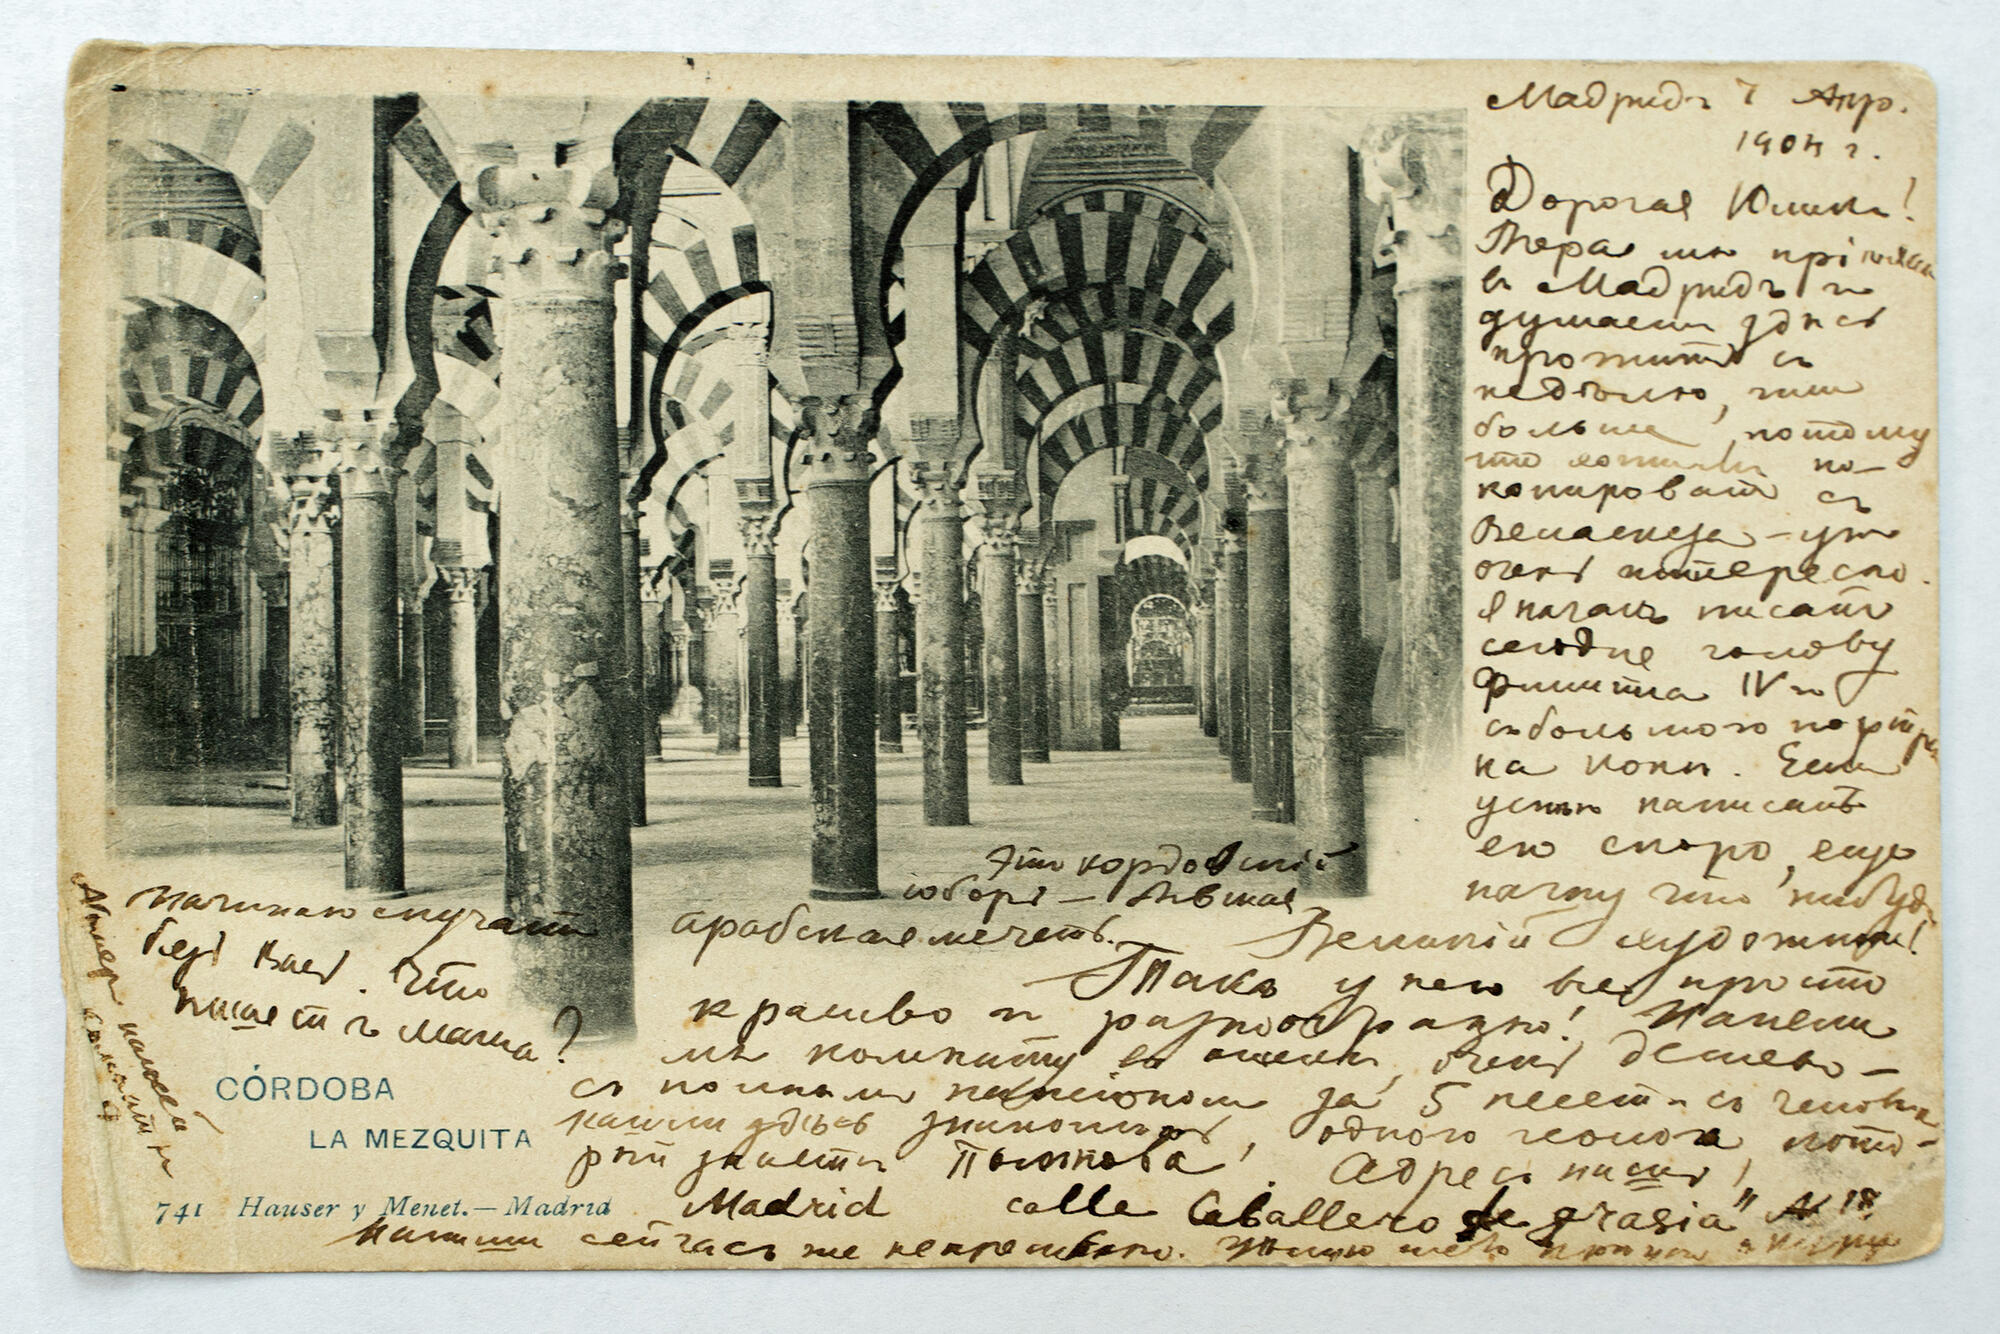 Мадридъ 7 Апр.
1904 г.
Дорогая Юлика!
Вчера мы пріѣхали
въ Мадридъ и
думаемъ здѣсь
прожить съ
недѣлю, или
больше, потому
что хотимъ по-
копировать съ
Веласкеза – ужъ
очень интересно.
Я началъ писать
сегодня голову
Филиппа IV го
съ большого портрета
на конѣ. Если
успѣю написать
ею скоро, еще
начну что нибудь
Великій художникъ!
Такъ у него все просто
красиво и разнообразно! Наняли
мы комнату въ очень, очень дешево –
съ полнымъ пансіономъ за 5 песетъ съ человѣка
нашли здѣсь знакомыхъ, одного геолога, кото-
рый знаетъ! Адресъ пиши
Madrid calle Caballero de grasia" № 18
Напиши сейчасъ же непремѣнно.
Это кордовскій
соборъ – бывшая
арабская мечеть.
Начинаю скучать
безъ Васъ. Что
пишетъ мама?
CÓRDOBA
LA MEZQUITA
741 Hauser y Menet.—Madrid